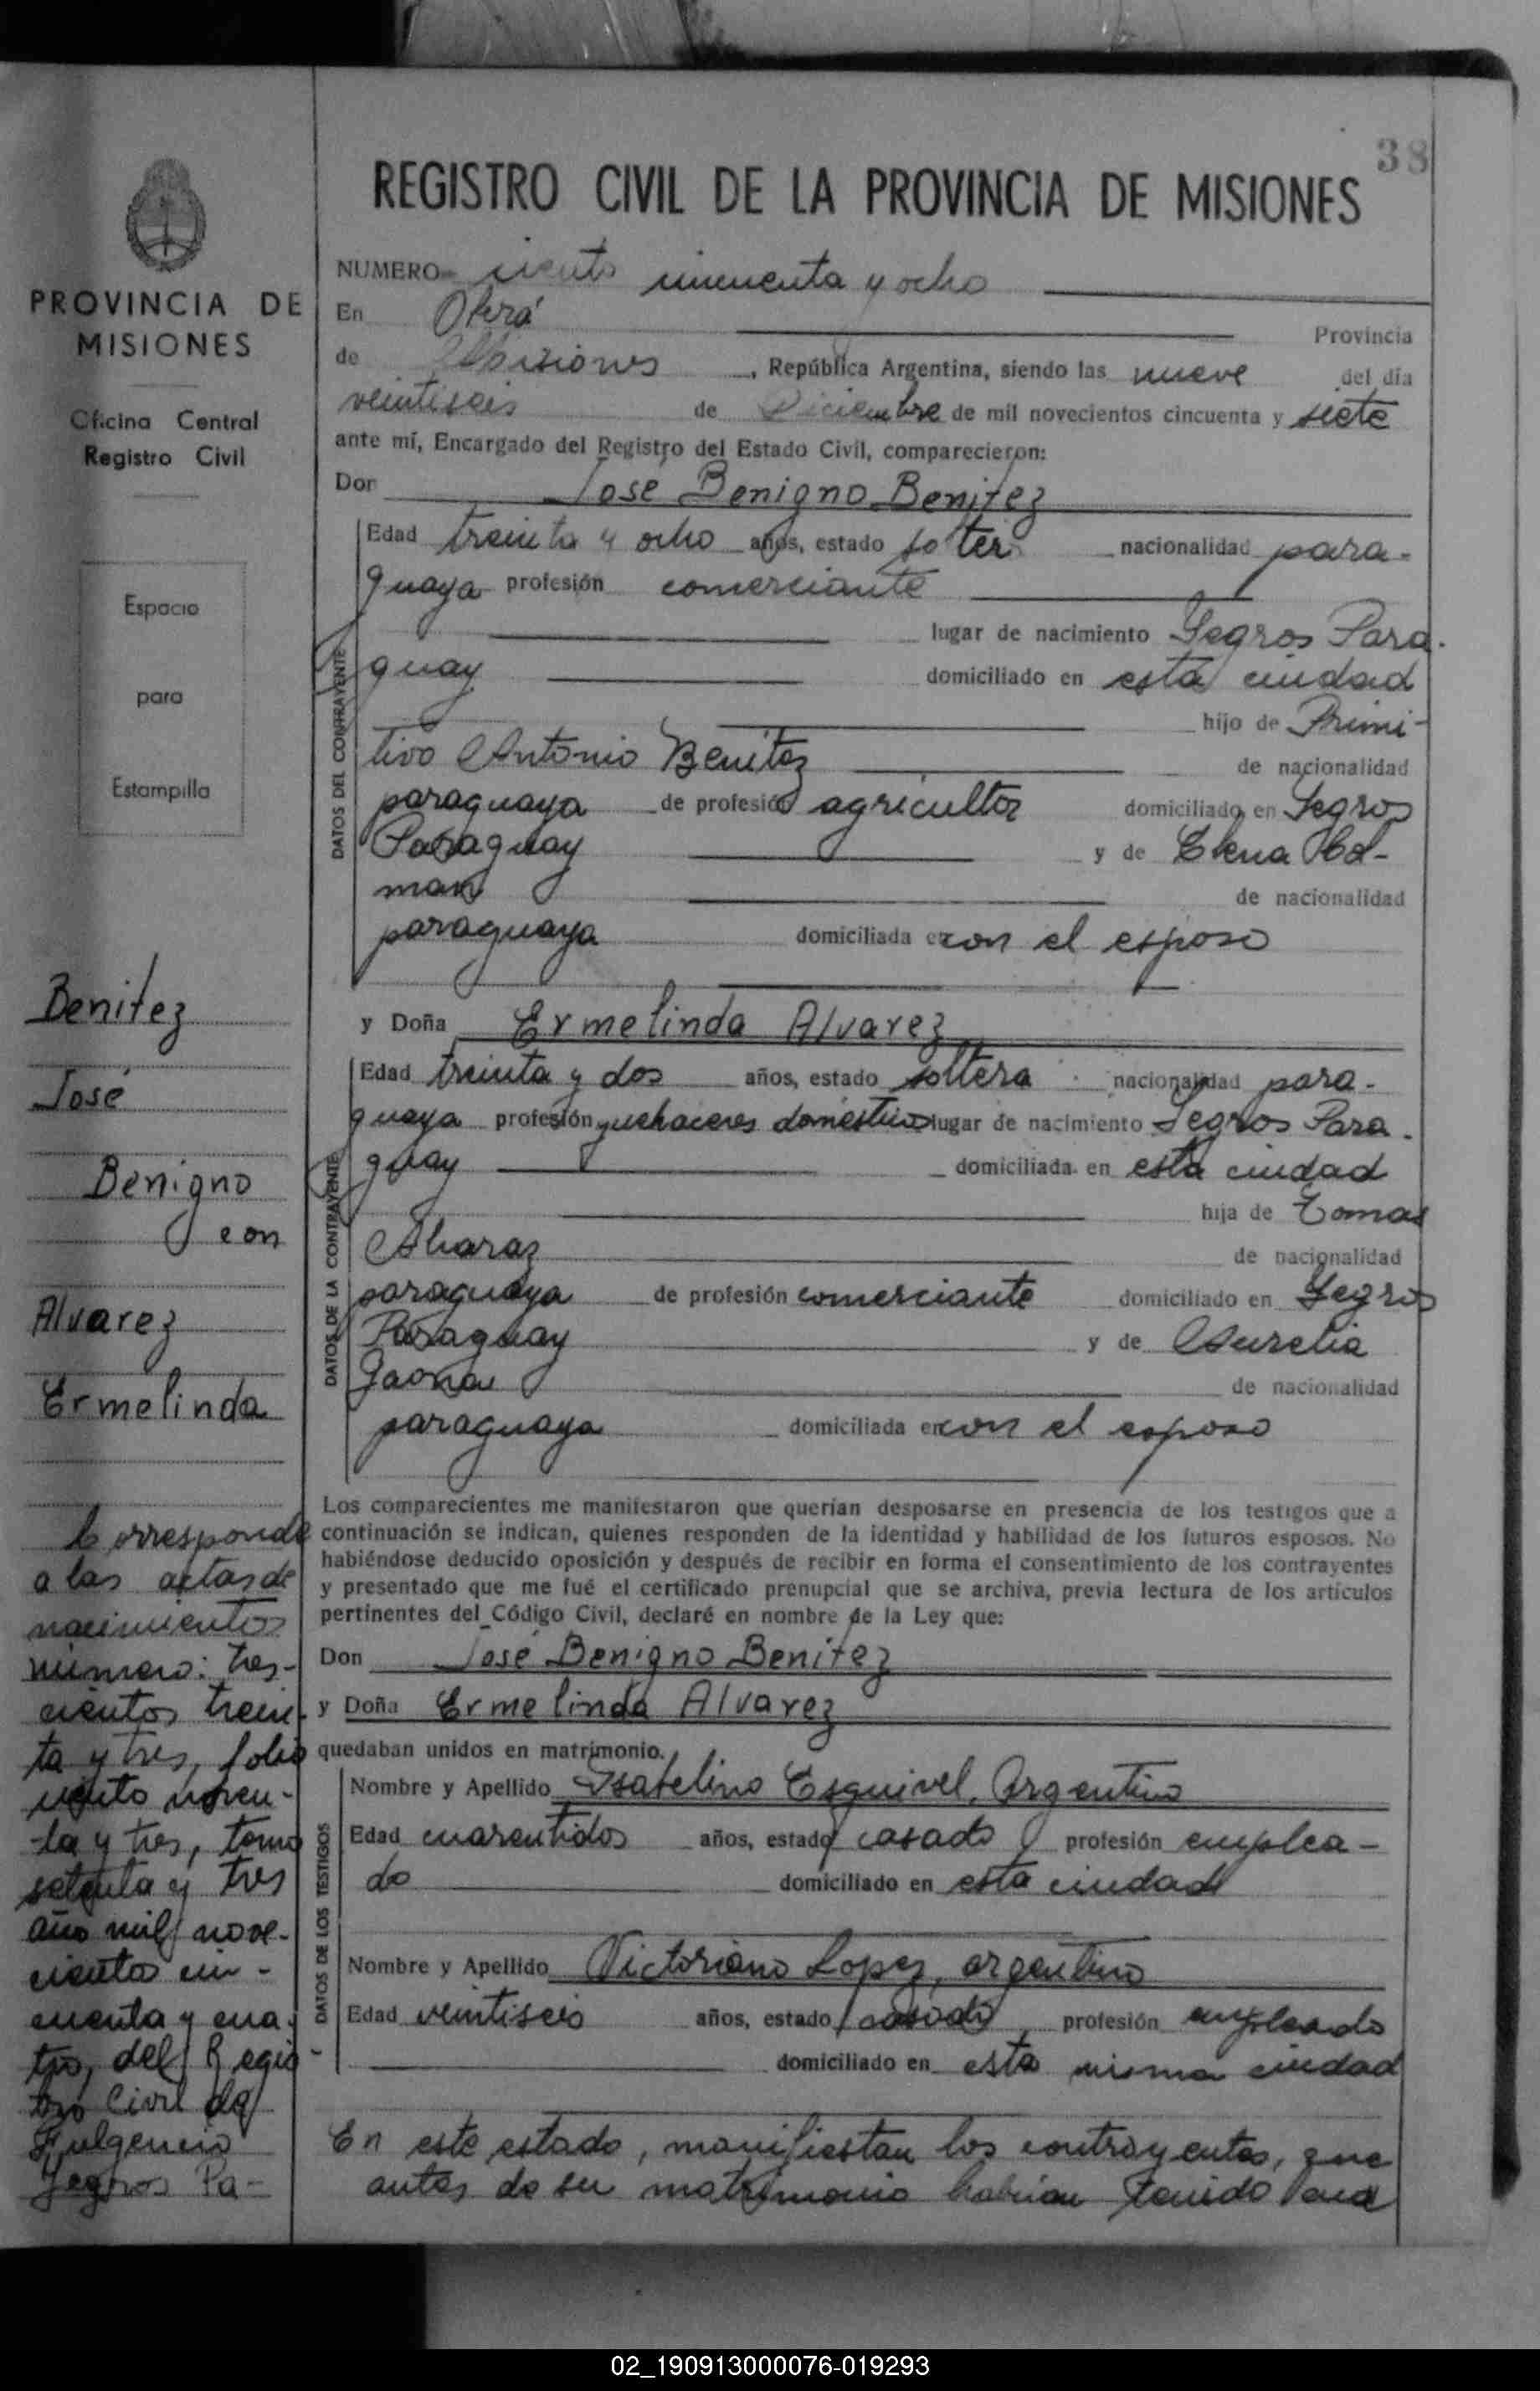 38
REGISTRO CIVIL DE LA PROVINCIA DE MISIONES
PROVINCIA DE
MISIONES
Oficina Central
Registro Civil
Espacio
para
Estampilla
Benitez
José
Benigno
con
Alvarez
Ermelinda
Corresponde
a las actas de
nacimientos
número: tres-
cientos trein-
ta y tres, folio
ciento noven-
ta y tres, tomo
setenta y tres
año mil nove-
cientos cin-
cuenta y cua-
tro, del Regis-
tro Civil de
Fulgencio
Yegros Pa-
NUMERO ciento cincuenta y ocho
En Oberá Provincia
de Misiones , República Argentina, siendo las nueve del día
veintiseis de Diciembre de mil novecientos cincuenta y siete
ante mí, Encargado del Registro del Estado Civil, comparecieron:
Don José Benigno Benitez
DATOS DEL CONTRAYENTE
Edad treinta y ocho años, estado soltero nacionalidad para-
guaya profesión comerciante
lugar de nacimiento Yegros Para-
guay domiciliado en esta ciudad
hijo de Primi-
tivo Antonio Benitez de nacionalidad
paraguaya de profesión agricultor domiciliado en Yegros
Paraguay y de Elena
man de nacionalidad
paraguaya domiciliada en con el esposo
y Doña Ermelinda Alvarez
DATOS DE LA CONTRAYENTE
Edad treinta y dos años, estado soltera nacionalidad para-
guaya profesión quehaceres domésticos lugar de nacimiento Yegros Para-
guay domiciliada en esta ciudad
hija de Tomas
Alvarez de nacionalidad
paraguaya de profesión comerciante domiciliado en Yegros
Paraguay y de Aurelia
Gaona de nacionalidad
paraguaya domiciliada en con el esposo
Los comparecientes me manifestaron que querían desposarse en presencia de los testigos que a
continuación se indican, quienes responden de la identidad y habilidad de los futuros esposos. No
habiéndose deducido oposición y después de recibir en forma el consentimiento de los contrayentes
y presentado que me fué el certificado prenupcial que se archiva, previa lectura de los artículos
pertinentes del Código Civil, declaré en nombre de la Ley que:
Don José Benigno Benitez
y Doña Ermelinda Alvarez
quedaban unidos en matrimonio.
DATOS DE LOS TESTIGOS
Nombre y Apellido Isabelino Esquivel, Argentino
Edad cuarentidos años, estado casado profesión emplea-
do domiciliado en esta ciudad
Nombre y Apellido Victoriano Lopez, argentino
Edad veintiseis años, estado casado profesión empleado
domiciliado en esta misma ciudad
En este estado, manifiestan los contrayentes, que
antes de su matrimonio habian tenido una
02_190913000076-019293